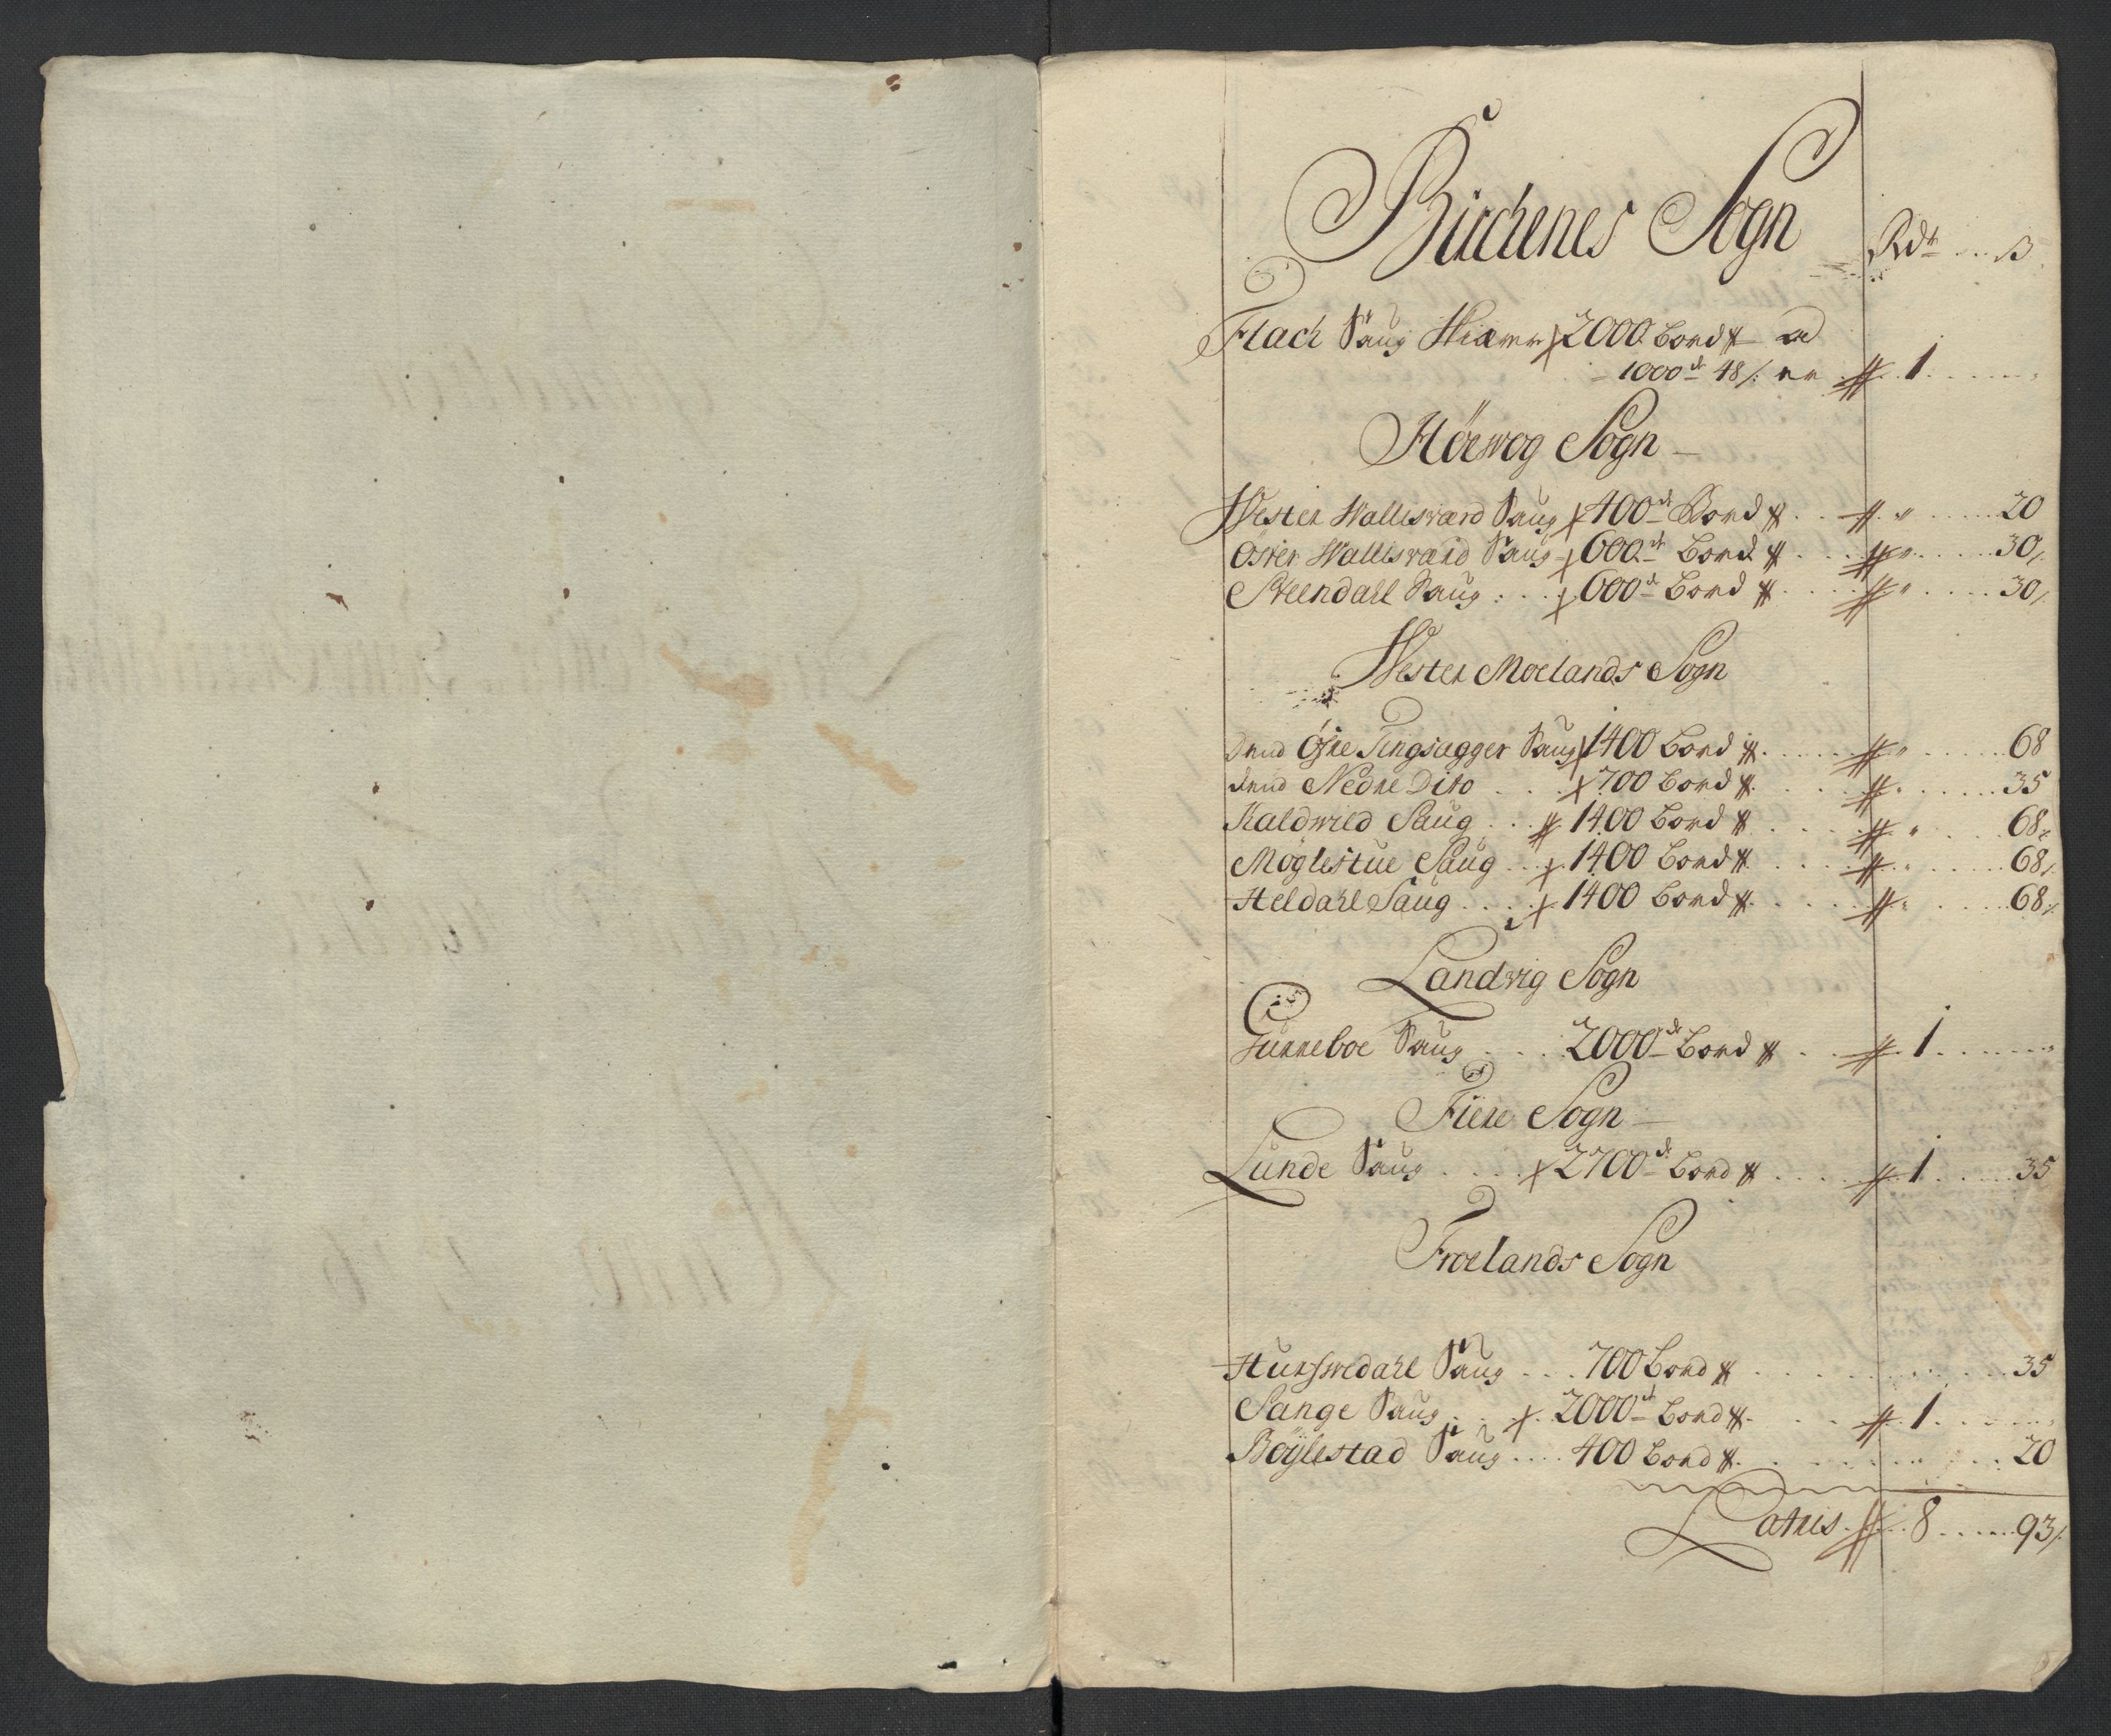 Birchenes Sogn
Rdr ß
Flach Saug Skiærer 2000 Bord ad
1000de 48 ß er 1
Höewog Sogn
Wester Wallisværd Saug 400de Bord " 20
Öster Wallisværd Saug 600de Bord " 30
Steendahl Saug 600de Bord " 30
Wester Moelands Sogn
Dend Öfre Tingsagger Saug 1400 Bord " 68
dend Nedre Dito 700 Bord " 35
Kaldwild Saug 1400 Bord " 68
Möglestue Saug 1400 Bord " 68
Heldahl Saug 1400 Bord " 68
Landvig Sogn
Saug 2000de Bord 1
Fiere Sogn
Lunde Saug 2700de Bord 1 35
Froelands Sogn
Hurswedahl Saug 700 Bord 35
Sange Saug 2000de Bord 1
Böylestad Saug 400 Bord 20
Latris 8 93